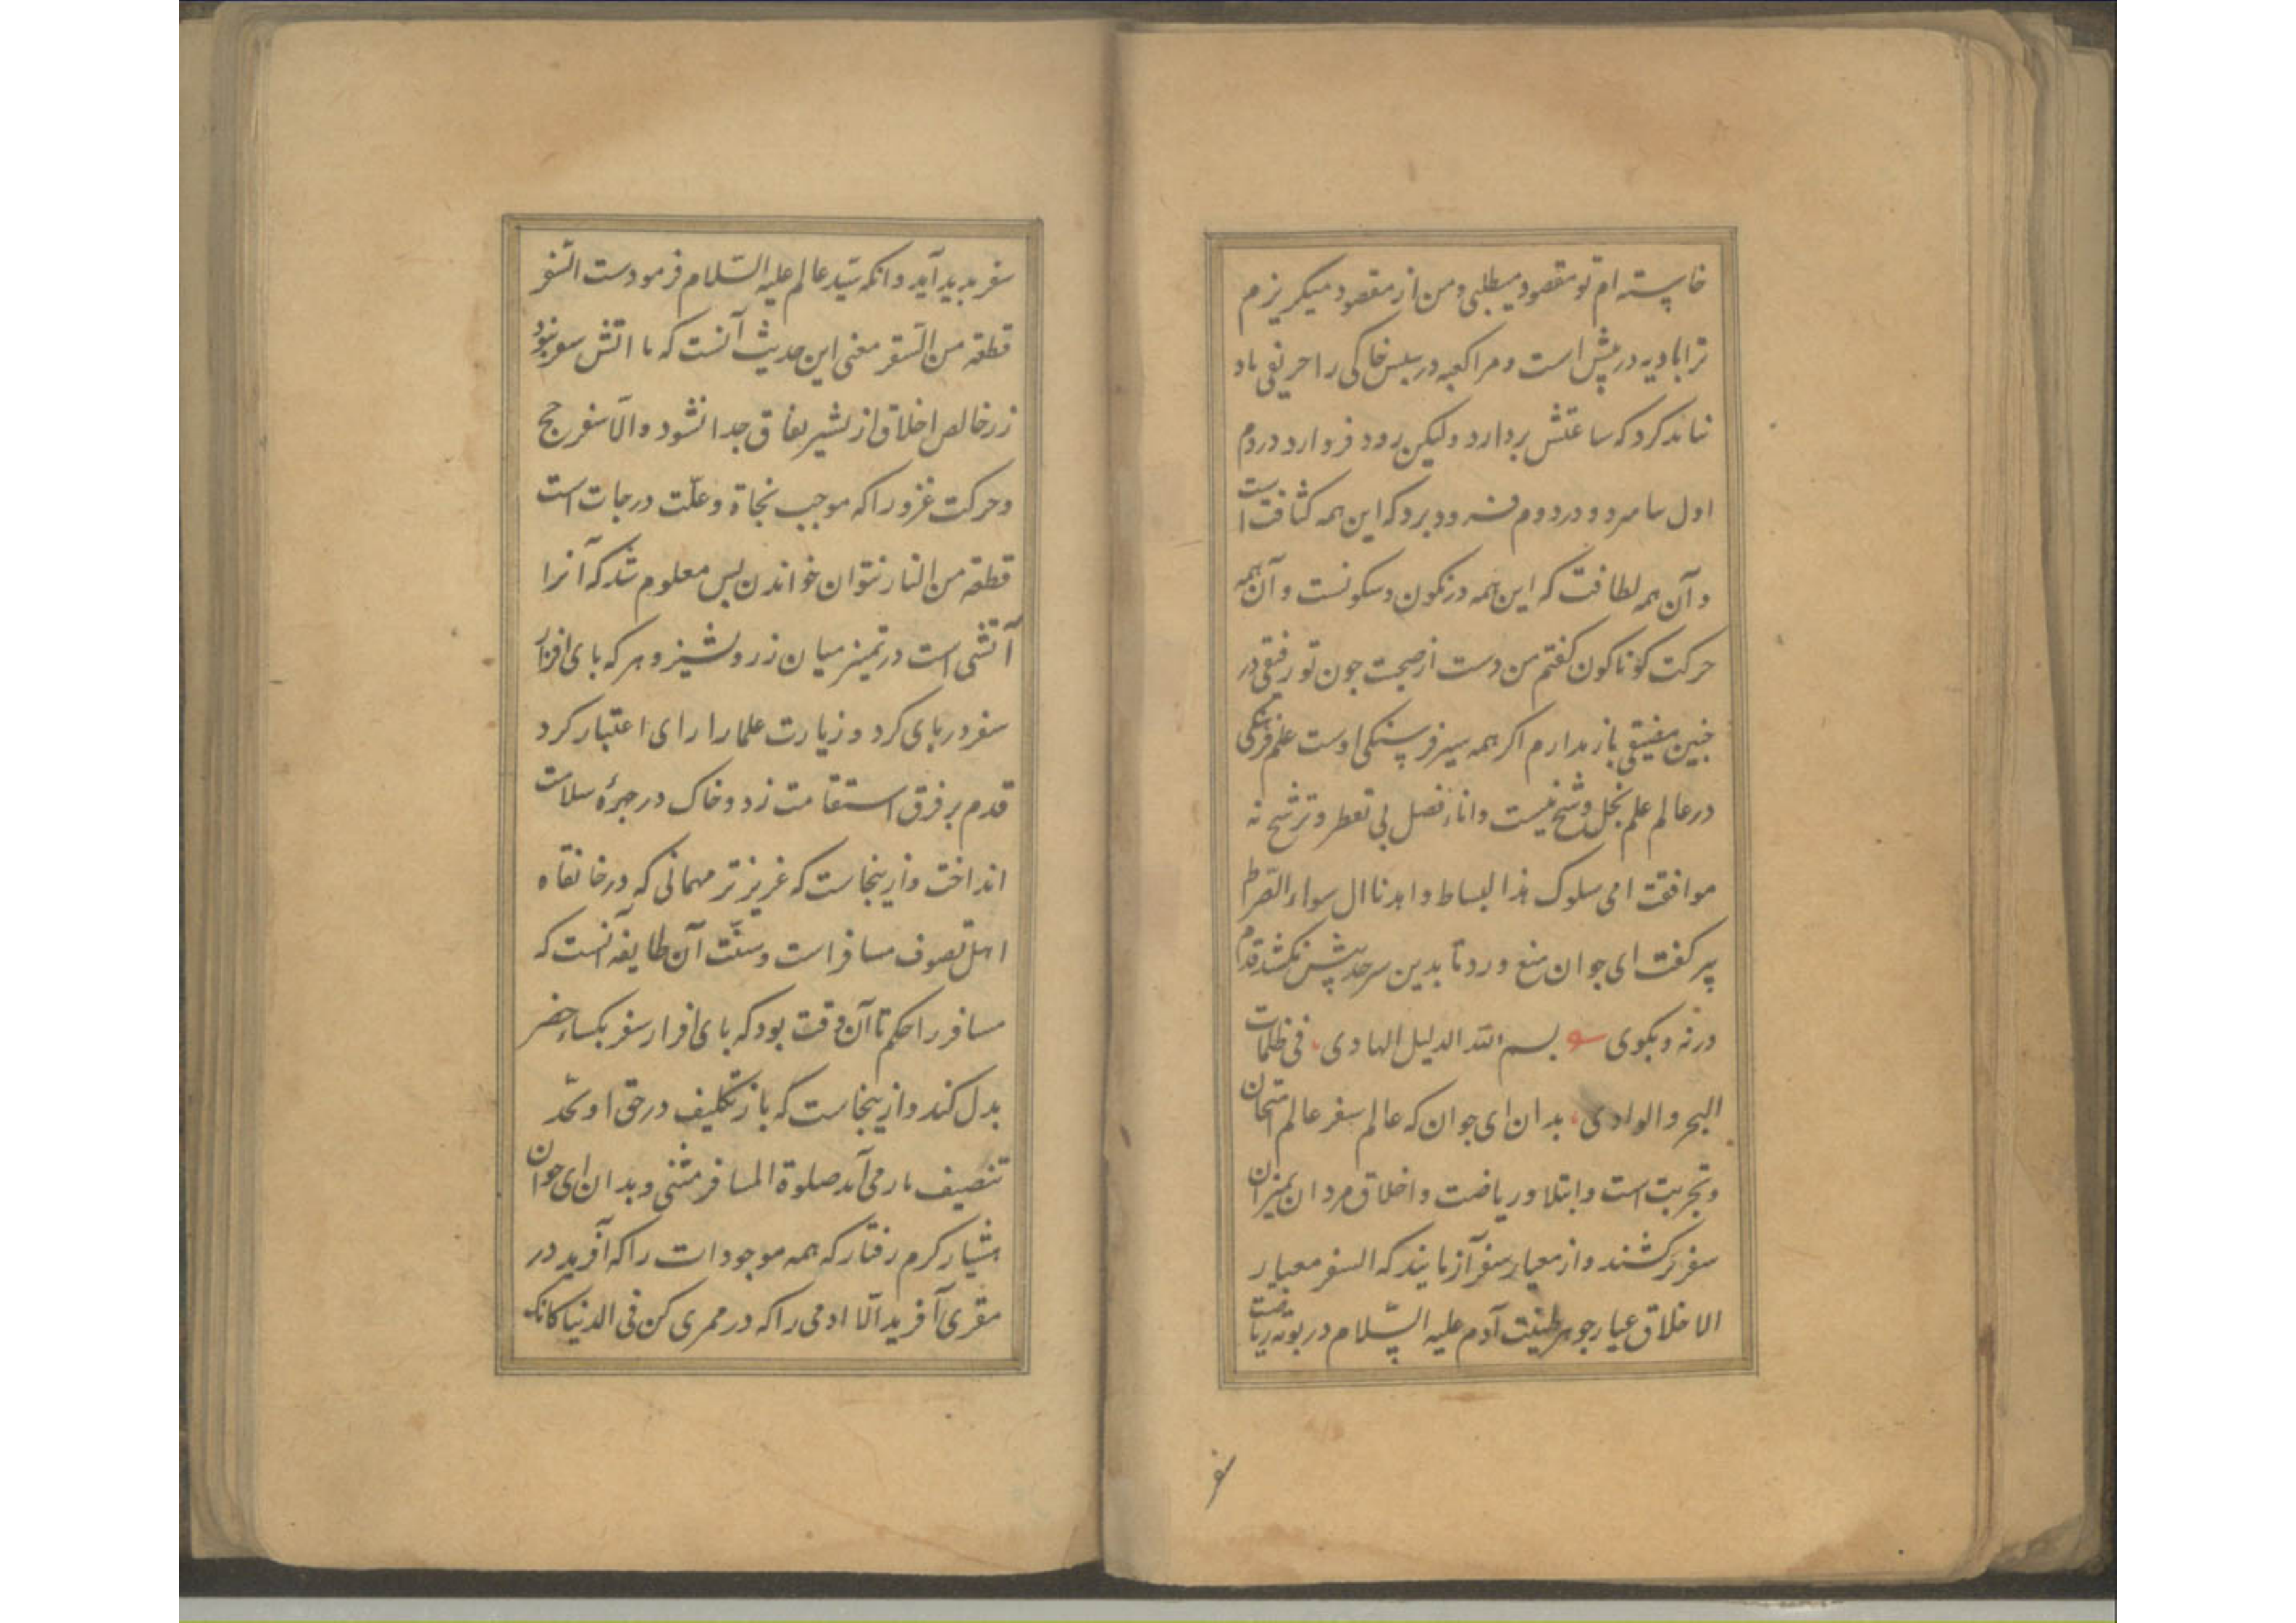 خاسته ام تو مقصود میطلبی و من از مقصود میکریزم
ترا بادیه در پیش است و مرا کعبه در پس خاکی را حریفی باد
نباید کرد که ساعتش بردارد و لیکن زود فرو آرد در دم
اول با سرد و در دوم فرود برد که این همه کثافت است
و آن همه لطافت که این همه در نکون و سکونست و آن همه
حرکت کوناکون کفتم من دست از صحبت جون تو رفیقی در
جنین مضیقی باز ندارم اکر همه سیر فرسنکی اوست علم فرهنکی
در عالم علم بخل و شح نیست و اناء فضل بی تعطر و ترشح نه
موافقت امی سلوک هذا البساط و اهدنا ال سواء الصراط
پیر کفت ای جوان منع و رد تا بدین سر حد پیش نکشد قدم
در نه و بکوی بسم الله الدلیل الهادی فی ظلمات
البحر والوادی بدان ای جوان که عالم سفر عالم امتحان
و تجربت است و ابتلا و ریاضت و اخلاق مردان بمیزان
سفر برکشند و از معیار سفر آزمایند که السفر معیار
الاخلاق عیار جوهر طینت آدم علیه السّلام در بوته ریاضت
سفر
سفر بدید آید و انکه سیّد عالم علیه السّلام فرمودست السّفر
قطعة من السّقر معنی این حدیث آنست که تا اتش سفر نبود
زر خالص اخلاق از بشیز نفاق جدا نشود و الّا سفر حج
و حرکت غزو را که موجب نجاة و علّت درجات است
قطعة من النار نتوان خواندن بس معلوم شد که آنرا
آتشی است در تمییز میان زر و بشیز و هر که بای افزار
سفر در بای کرد و زیارت علما را رای اعتبار کرد
قدم بر فرق استقامت زد و خاک در جهرهٔ سلامت
انداخت و ازینجاست که عزیزتر مهمانی که در خانقاه
اهل تصوف مسافر است و سنّت آن طایفه آنست که
مسافر را حکم تا آن وقت بود که بای افزار سفر بکساء حضر
بدل کند و ازینجاست که باز تکلیف در حق او بحّد
تنصیف باز می آید صلوة المسافر مثنی و بدان ای جوان
هشیار کرم رفتار که همه موجودات را که آفرید در
مقری آفرید الّا ادمی را که در ممری کن فی الدنیا کانک